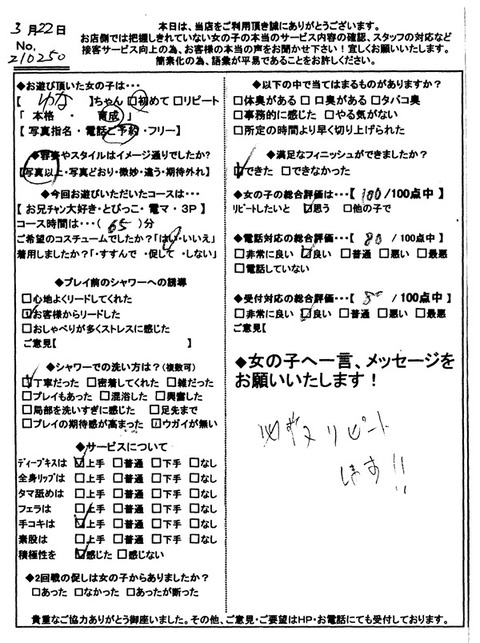 3月22日
No.
210250
本日は、当店をご利用頂き誠にありがとうございます。
お店側では把握しきれていない女の子の本当のサービス内容の確認、スタッフの対応など
接客サービス向上の為、お客様の本当の声をお聞かせ下さい！宜しくお願いいたします。
簡素化の為、語彙が平易であることをお許しください。
◆お遊び頂いた女の子は・・・
【 ゆな 】ちゃん □初めて □リピート
「 本格 ・ 育成 」
【 写真指名 ・ 電話ご予約 ・フリー】
◆容姿やスタイルはイメージ通りでしたか?
【写真以上・写真どおり・微妙・違う・期待外れ】
◆今回お遊びいただいたコースは・・・
【 お兄チャン大好き・とびっこ・電マ・3P 】
コース時間は・・・( 65 )分
ご希望のコスチュームでしたか?「はい・いいえ」
着用しましたか?「・すすんで ・促して ・しない」
◆プレイ前のシャワーへの誘導
□心地よくリードしてくれた
□お客様からリードした
□おしゃべりが多くストレスに感じた
ご意見【 】
◆シャワーでの洗い方は？(複数可)
□丁寧だった □密着してくれた □雑だった
□プレイもあった □混浴した □興奮した
□局部を洗いすぎに感じた □足先まで
□プレイの期待感が高まった □ウガイが無い
◆サービスについて
ディープキスは □上手 □普通 □下手 □なし
全身リップは □上手 □普通 □下手 □なし
タマ舐めは □上手 □普通 □下手 □なし
フェラは □上手 □普通 □下手 □なし
手コキは □上手 □普通 □下手 □なし
素股は □上手 □普通 □下手 □なし
積極性を □感じた □感じない
◆2回戦の促しは女の子からありましたか？
□あった □なかった □あったが断った
◆以下の中で当てはまるものがありますか？
□体臭がある □口臭がある □タバコ臭
□事務的に感じた □やる気がない
□所定の時間より早く切り上げられた
◆満足なフィニッシュができましたか？
□できた □できなかった
◆女の子の総合評価は・・・【 100 /100点中 】
リピートしたいと □思う □他の子で
◆電話対応の総合評価・・・【 80 /100点中】
□非常に良い □良い □普通 □悪い □最悪
□電話していない
◆受付対応の総合評価・・・【 80 /100点中】
□非常に良い □良い □普通 □悪い □最悪
ご意見【
◆女の子へ一言、メッセージを
お願いいたします！
リピート
ます!!
貴重なご協力ありがとう御座いました。その他、ご意見・ご要望はHP・お電話にても受付しております。